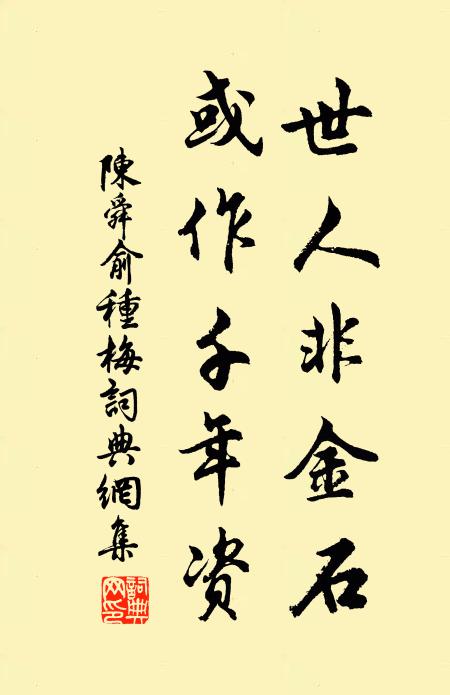 世人非金石
或作千年资
陳舜俞種梅詞典網集
詞典网印